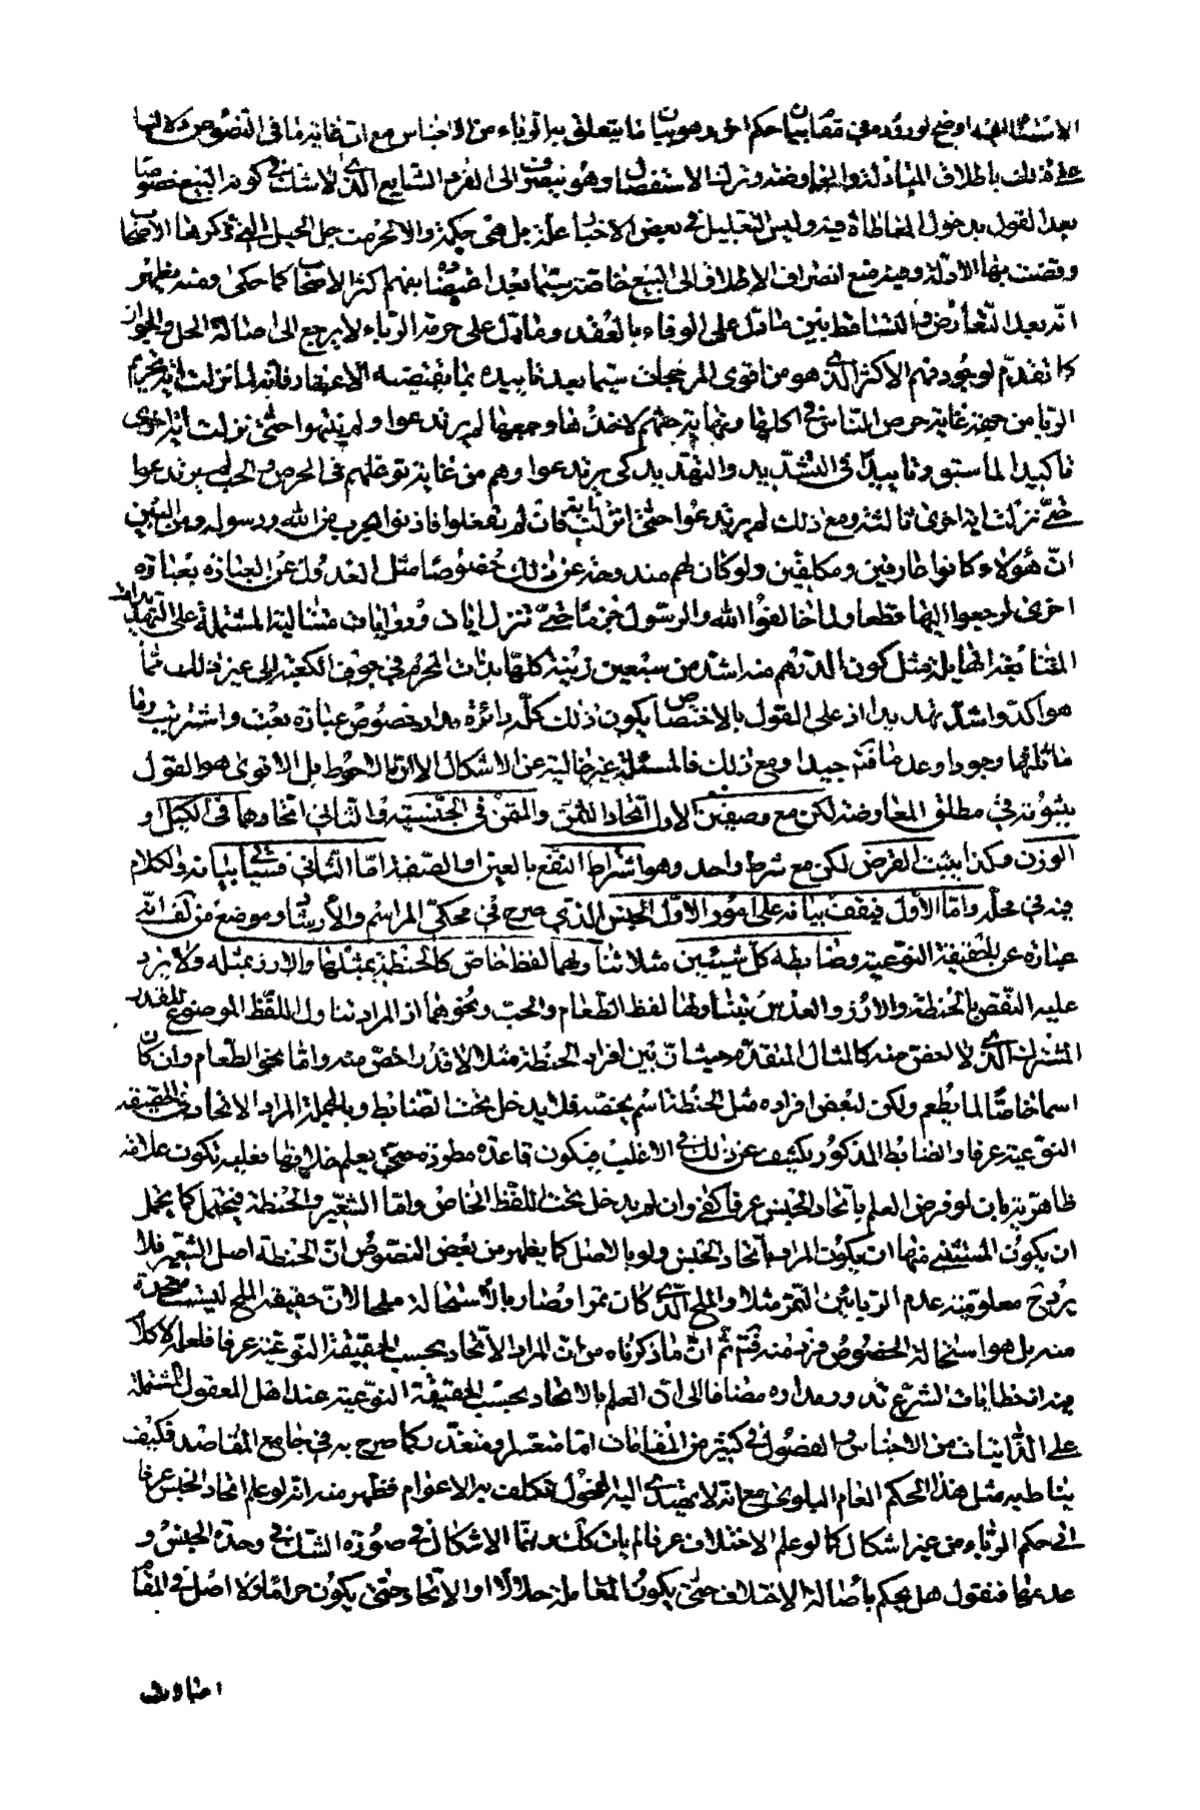 الاستثنائيه اوضح لوروده في مقام بيان حكم اخر وهو بيان ما يتعلق به الرباء من الاجناس مع ان غاية ما في النصوص دلالتها
على ذلك باطلاق المبادلة والمعاوضة وترك الاستفصال وهو ينصرف الى الفرد الشايع الذي لا شك في كونه البيع خصوصا
بعد القول بدخول المعاطاة فيه وليس التعليل في بعض الاخبار علة بل هي حكمة والا لحرمت جل الحيل التي ذكرها الاصحاب
وقضت بها الادلة وفيه منع انصراف الاطلاق الى البيع خاصة سيّما بعد اعتضاده بفهم اكثر الاصحاب كما حكى ومنه يظهر
انّه بعد التعارض والتساقط بين ما دل على الوفاء بالعقد وما دل على حرمة الرباء لا يرجع الى اصالة الحل والجواز
كما تقدّم لوجود فهم الاكثر الذي هو من اقوى المرجحات سيّما بعد تاييده بما يقتضيه الاعتبار فانه لما نزلت اية تحريم
الربا من جهة غاية حرص الناس في اكلها ونهاية حثهم لاخذها وجمعها لم يرتدعوا ولم ينتهوا حتى نزلت اية اخرى
تاكيدا لما سبق وتاييدا في التشديد والتهديد كي يرتدعوا وهم من غاية توغلهم في الحرص والحب لم يرتدعوا
حتى نزلت اية اخرى ثالثة ومع ذلك لم يرتدعوا حتى انزلت اية فان لم تفعلوا فاذنوا بحرب من الله ورسوله ومن البين
انّ هؤلاء كانوا عارفين ومكلفين ولو كان لهم مندوحة عن ذلك خصوصا مثل العدول عن العبارة بعبارة
اخرى لرجعوا اليها قطعا ولما خالفوا الله والرسول جزما حتى تنزل ايات وروايات متتالية المشتملة على التهديدات
المتتابعة الهايلة مثل كون الدرهم منه اشد من سبعين زنية كلها بذات المحرم في جوف الكعبة الى غير ذلك مما
هو اكد واشد تهديدا اذ على القول بالاختصاص يكون ذلك كله دائرة مدار خصوص عبارة بعت واشتريت وما
ماثلها وجودا وعدما فتم جيدا ومع ذلك فالمسئلة غير خالية عن الاشكال الا ان الاحوط بل الاقوى هو القول
بثبوته في مطلق المعاوضة لكن مع وصفين الاول اتحاد الثمن والمثمن في الجنسية والثاني اتحادهما في الكيل او
الوزن وهكذا يثبت الفرض لكن مع شرط واحد وهو اشتراط النفع بالعين او الصفة امّا الثاني فسيأتي بيانه والكلام
فيه في محله وامّا الاول فيقف بيانه على امور الاوّل الجنس الذي صرح في محكي المراسم والارشاد وموضع من كشف انّه
عبارة عن الحقيقة النوعية وضابطه كل شيئين مثلا تناولهما لفظ خاصّ كالحنطة بمثلها والارز بمثله ولا يرد
عليه النقص بالحنطة والارز والعدس بتناولها لفظ الطعام والحب ونحوهما اذ المراد تناول اللفظ الموضوع للقدر
المشترك الذي لا بعض منه كالمثال المتقدم حيث انّ بين افراد الحنطة مثلا لا قدر اخص منه وامّا نحو الطعام وان كان
اسما خاصّا لما يطعم ولكن لبعض افراده مثل الحنطة اسم يخصه فلا يدخل تحت الضابط وبالجملة المراد الاتحاد في الحقيقة
النوعية عرفا والضابط المذكور يكشف عن ذلك في الاغلب فيكون قاعدة مطردة حتى يعلم خلافها فعليه تكون علامة
ظاهرية بان لو فرض العلم باتحاد الجنس عرفا كفى وان لم يدخل تحت اللفظ الخاص وامّا الشعير والحنطة فيحتمل كما يحتمل
ان يكون المستثنى منها ان يكون المراد باتحاد الجنس ولو بالاصل كما يظهر من بعض النصوص انّ الحنطة اصل الشعير فلا
يرد ح معلومية عدم الربا بين التمر مثلا والملح الذي كان تمرا وصار بالاستحالة ملحا لانّ حقيقة الملح ليست متحدة
منه بل هو استحالة الخصوص فرد منه فتم ثمّ انّ ما ذكرناه من ان المراد الاتحاد بحسب الحقيقة النوعية عرفا فلعله لا كلام
فيه اذ خطابات الشرع تدور مداره مضافا الى انّ العلم بالاتحاد بحسب الحقيقة النوعية عند اهل المعقول المشتملة
على الذاتيات من الاجناس والفصول في كثير من المقامات امّا متعسرا ومتعذر كما صرح به في جامع المقاصد فكيف
يناط به مثل هذا الحكم العام البلوى مع انّه لا يهتدى اليه الفحول فكلف به الاعوام فظهر منه انّه لو علم اتحاد الجنس عرفا
اتى حكم الرباء من غير اشكال كما لو علم الاختلاف عرفا لم يات كك وانّما الاشكال في صورة الشك في وحدة الجنس و
عدمها فنقول هل يحكم باصالة الاختلاف حتى يكون المعاملة حلالا او الاتحاد حتى يكون حراما او لا اصل في المقام